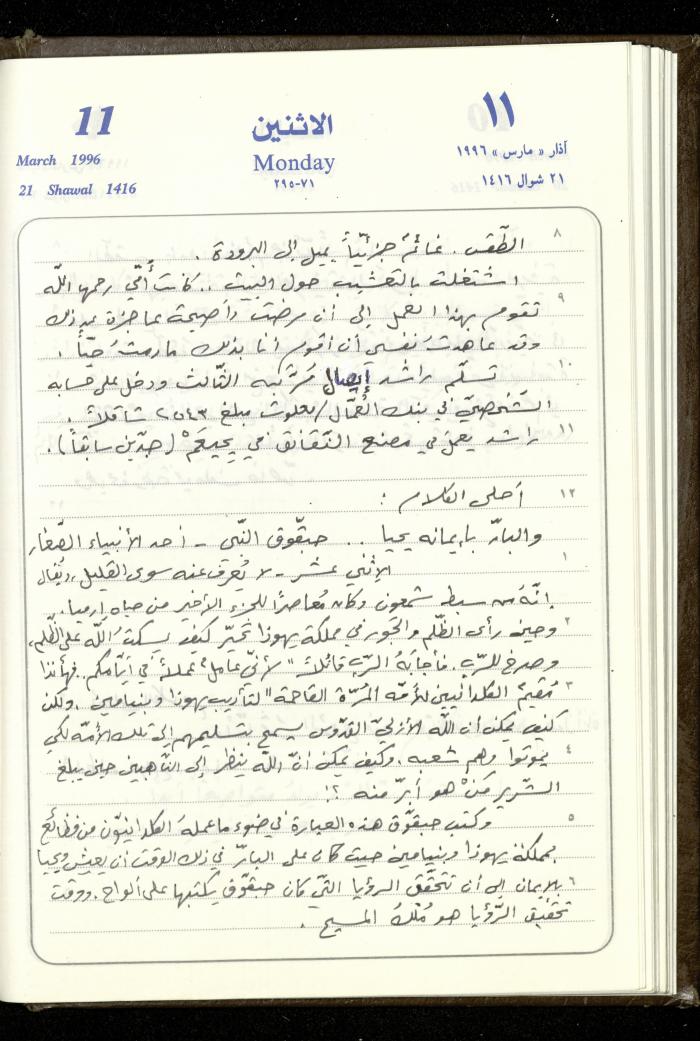 11
March 1996
21 Shawal 1416
الاثنين
Monday
٧١-٢٩٥
١١
آذار « مارس » ١٩٩٦
٢١ شوال ١٤١٦
٨ الطّقس . غائمٌ جزئيّاً يميل إلى البرودة .
اشتغلت بالتعشيب حول البيت .. كانت أُمّي رحمها اللّه
٩ تقوم بهذا العمل إلى أن مرضت وأصبحت عاجزة عن ذلك
وقد عاهدتُ نفسي أن أقوم أنا بذلك ما دمتُ حيّاً .
١٠ تسلّم راشد إيصال مُرَتّبه الثّالث ودخل على حسابه
الشّخصيّ في بنك العُمّال/معلوت مبلغ ٢٥٤٣ شاقلاً .
١١ راشد يعمل في مصنع النّقانق في يحيعَمْ (جدّين سابقاً) .
١٢ أحلى الكلام :
والبارّ بإيمانه يحيا .. حبقّوق النّبي - أحد الأنبياء الصّغار
١ الإثني عشر - لا يُعرف عنه سوى القليل ، ويُقال
إنّه من سبط شمعون وكان مُعاصراً للجزء الأخير من حياه إرميا .
٢ وحين رأى الظّلم والجَور في مملكة يهوذا تحيّر كيف يسكتُ اللّه على الظّلم ،
وصرخ للرّبّ . فأجابَهُ الرّبّ قائلاً " لأنّي عاملٌ عملاً في أيّامكم . فهأنذا
٣ مُقيمٌ الكلدانيين للأمّه المُرّة القاحمة " لتأديب يهوذا وبنيامين . ولكن
كيف يمكن أن اللّه الأزليّ القدّوس يسمح بتسليمهم إلى تلك الأمّه لكي
٤ يموتوا وهم شعبه . وكيف يمكن انّ اللّه ينظر إلى النّاهبين حين يبلغ
الشّرير مَنْ هو أبرّ منه ؟!
٥ وكتب حبقّوق هذه العبارة في ضوء ما عملهُ الكلدانيّون من فظائع
بمملكة يهوذا وبنيامين حيث كان على البارّ في ذلك الوقت أن يعيش ويحيا
٦ بالإيمان إلى أن تتحقّق الرؤيا التي كان حبقّوق يكتبها على ألواح . ووقت
تحقيق الرّؤيا هو مُلكُ المسيح .